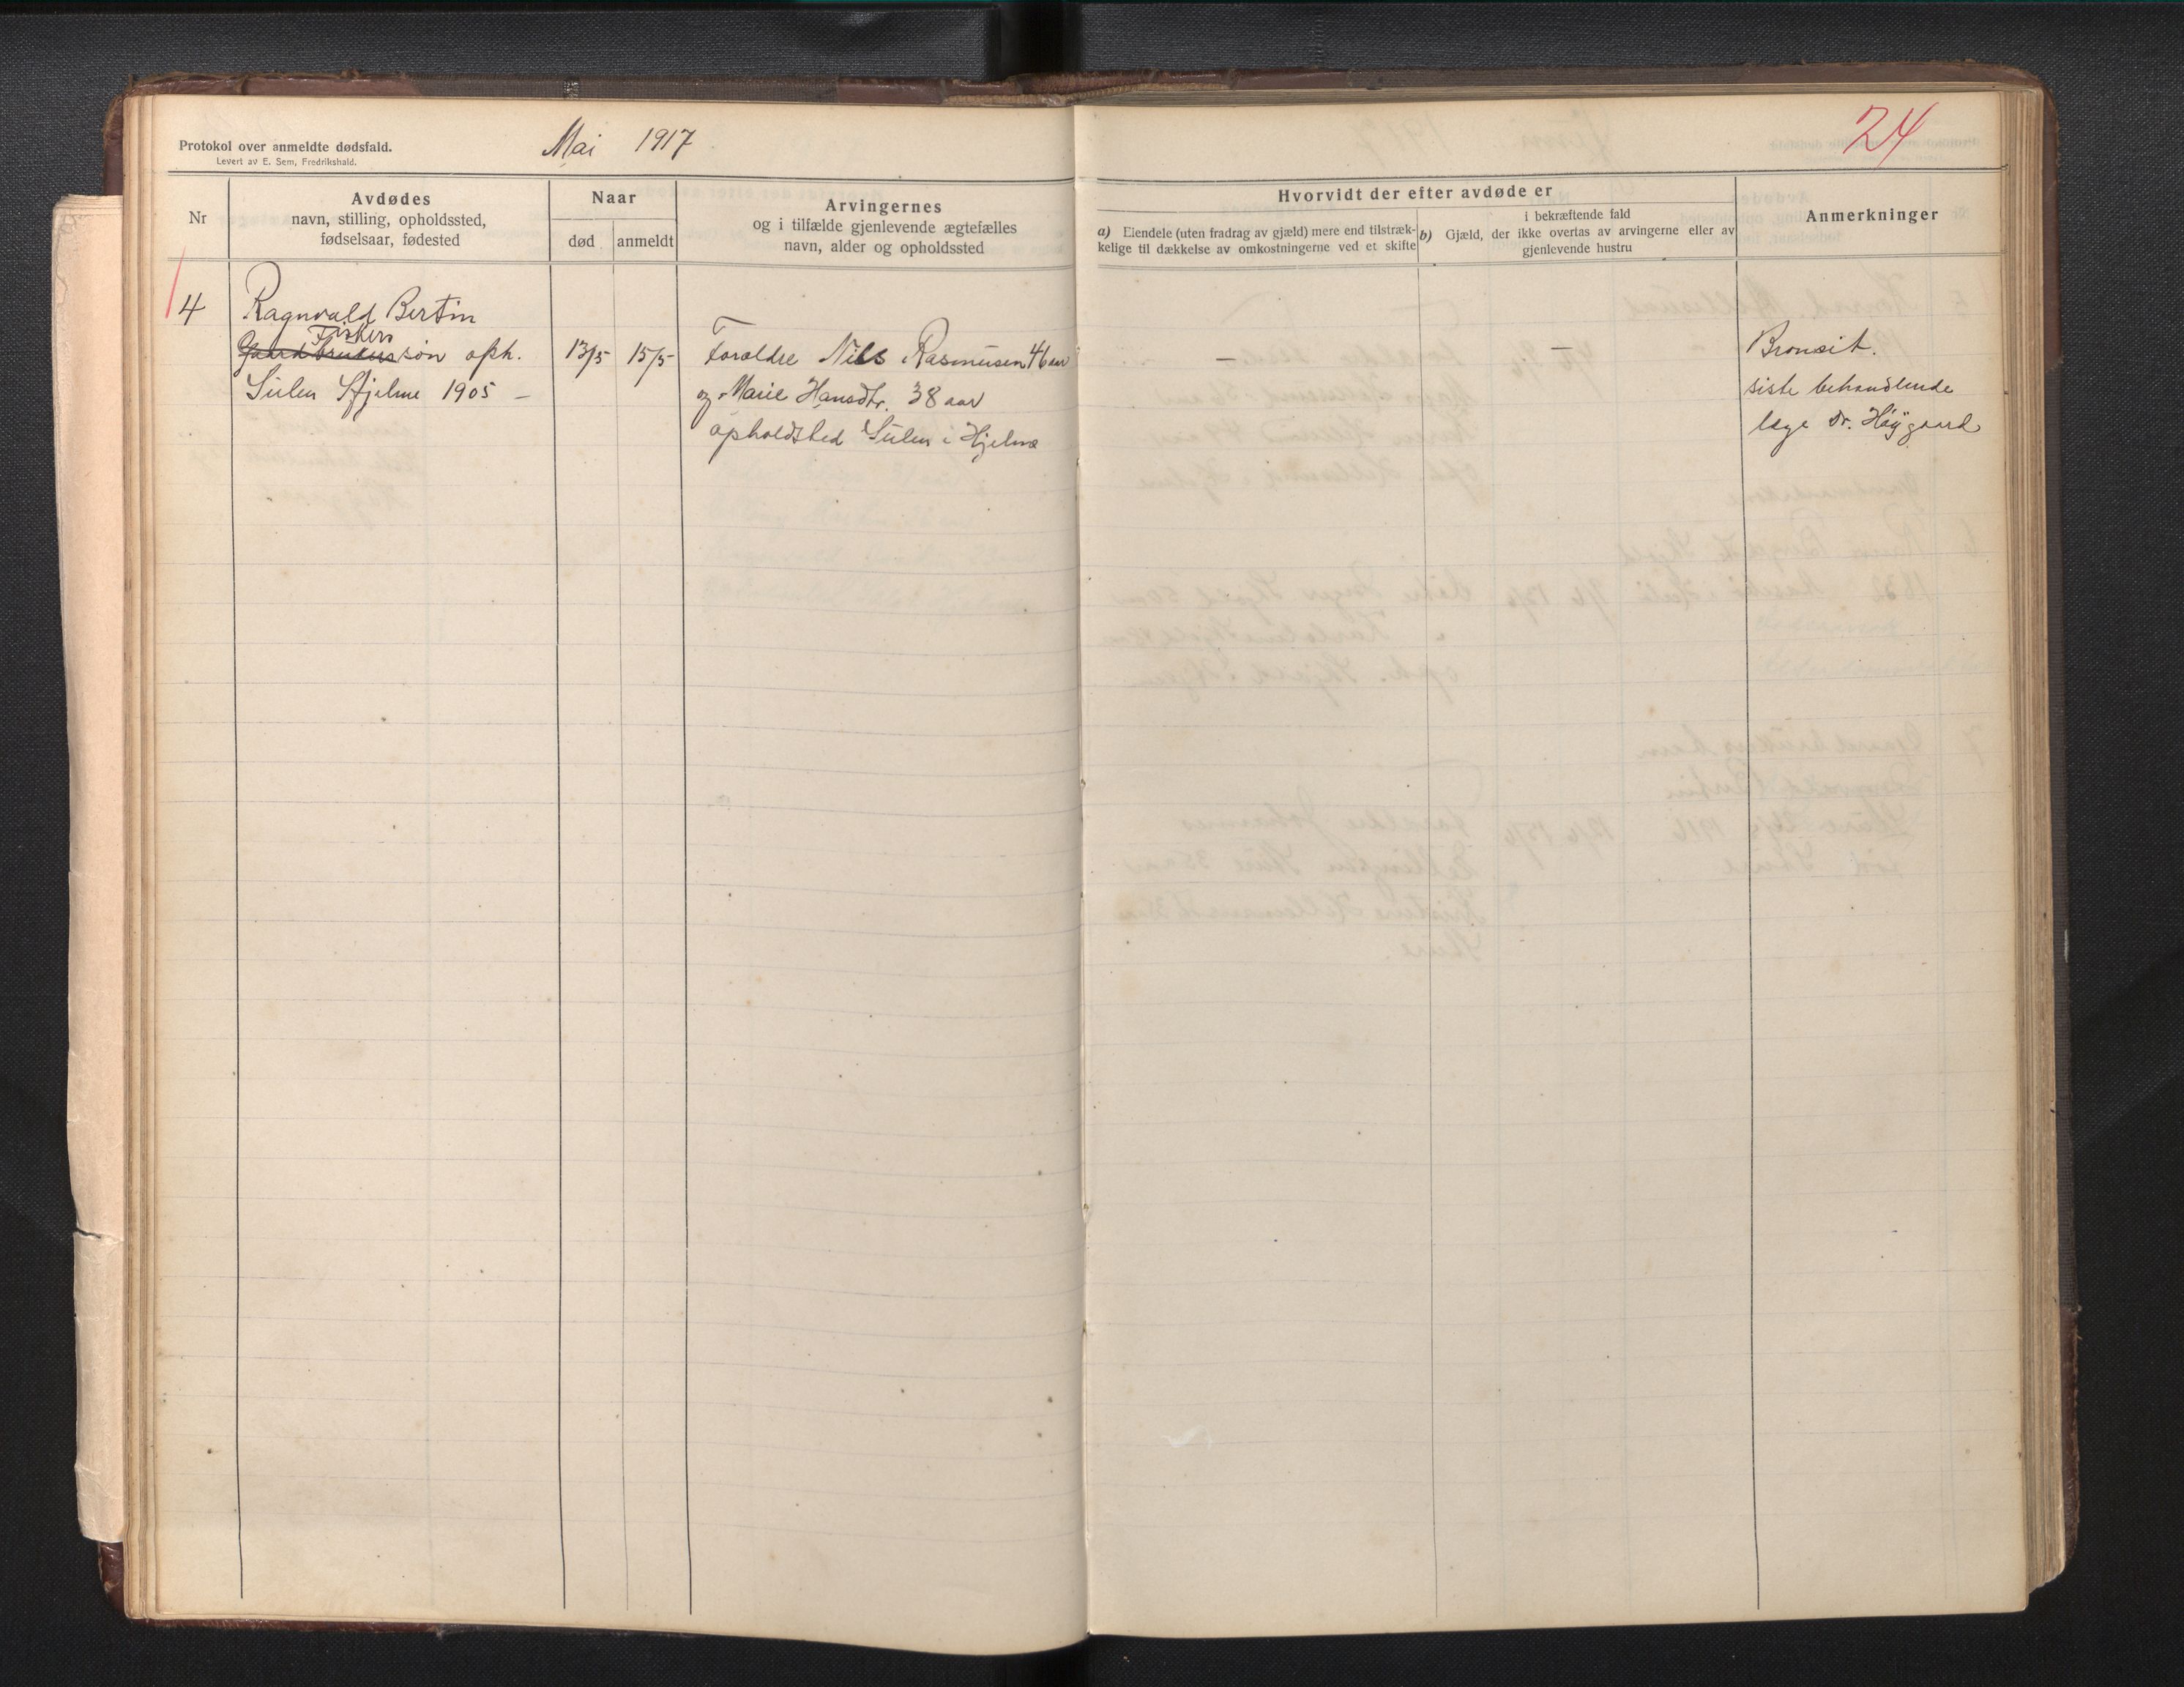 Protokol over anmeldte dødsfald.
Levert av E. Sem, Fredrikshald.
Mai 1917
24
Nr
Avdødes
navn, stilling, opholdssted,
fødselsaar, fødested
Naar
død
anmeldt
Arvingernes
og i tilfælde gjenlevende ægtefælles
navn, alder og opholdssted
Hvorvidt der efter avdøde er
a) Eiendele (uten fradrag av gjæld) mere end tilstræk-
kelige til dækkelse av omkostningerne ved et skifte
i bekræftende fald
b) Gjæld, der ikke overtas av arvingerne eller av
gjenlevende hustru
Anmerkninger
4
Ragnvald Bertin
Fiskers
Gaardbrukers søn oph.
Sulen Hjelme 1905 –
13/5
15/5
Foroldre Nils Rasmusen 46 aar
og Marie Hansdtr. 38 aar
opholdsted Sulen i Hjelme
–
–
Bronsit.
siste behandlende
læge Dr. Höygaard